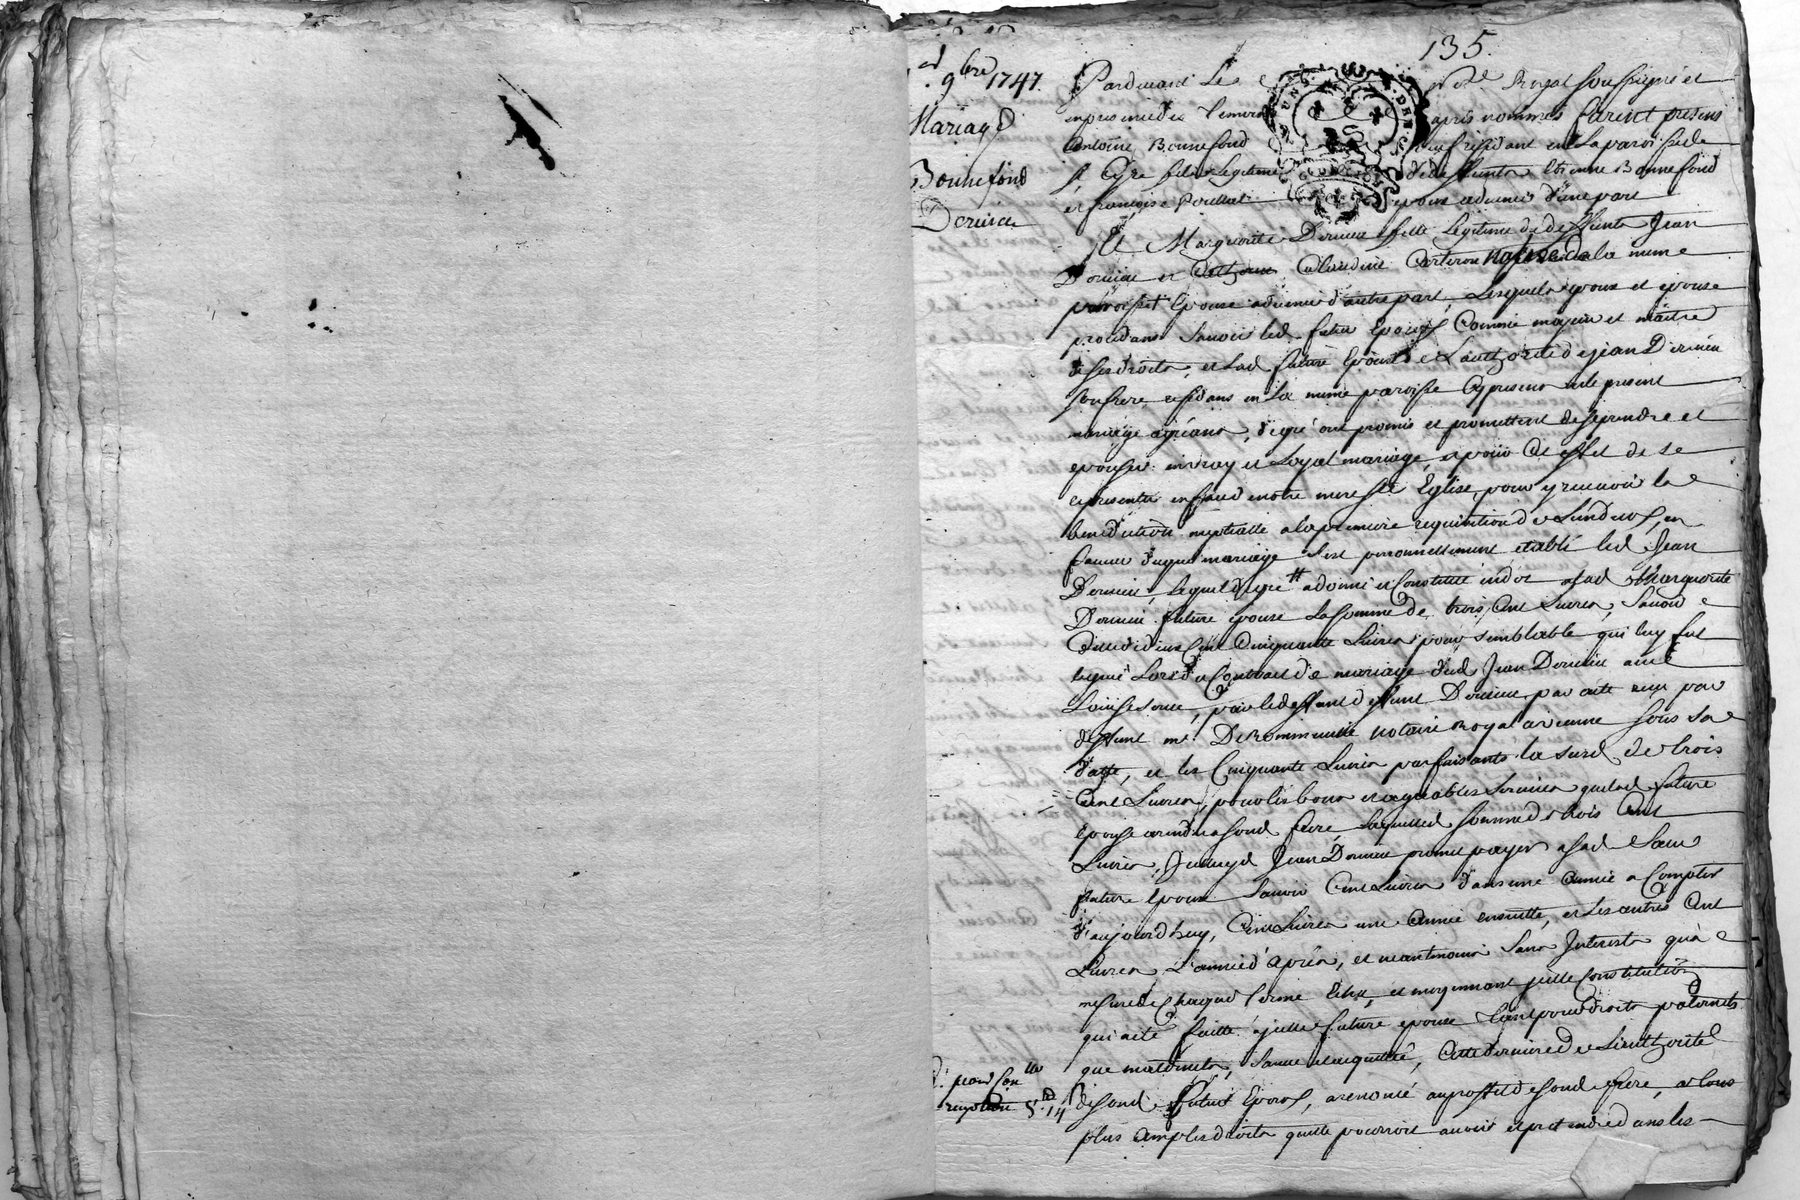 135.
9bre 1747.
Mariage
Bonnefond
Derieu
Pardevant Le No.re Royal soussigné et
en presence des temoins apres nommés furent presens
antoine Bonnefond residant en La paroisse de
st Cyre fils Legitime de deffunts Etienne Bonnefond
et françoise époux advenir d'une part
Et Marguerite Derieu fille Legitime de deffunts Jean
Derieu et Claudine Carteron de la meme
paroisse Epouse advenir d'autre part, Lesquels epoux et epouse
procedans Sauoir led. futur Epoux Comme majeur et maitre
de ses droits, et lad. future Epouse de L'authorité de jean Derieu
son frere residans en La meme paroisse Cy present et le present
mariage agréant, de gré ont promis et promettent de se prendre et
epouser en vray et Loyal mariage, et pour Cet effet de se
representer en face de notre mere ste Eglise, pour y recevoir la
benediction nuptialle a la premiere requisition de L'un deux, en
faueur duquel mariage s'est personnellement etabli led. Jean
Derieu, Lequel de gré a donné et Constitué en dot a lad. Marguerite
Derieu future epouse La somme de trois Cent Livres, Sauoir
Celle de deux Cent Cinquante Livres pour semblable qui luy fut
Leguée Lors du Contract de mariage dud. Jean Derieu avec
Louise par led. deffunt Derieu, par acte reçu par
deffunt me. notaire Royal a vienne sous sa
datte, et les Cinquante Livres parfaisants la susd. de trois
Cent Livres, pour les bons et agreables services que lad. future
epouse a rendu a sond. frere, Laquelle somme de trois Cent
Livres, Jcelluy Jean Derieu promet payer a sad. Sœur
future epouse Sauoir Cent Livres dans une année a Compter
d'aujourdhuy, Cent Livres une année ensuitte, et Les autres Cent
Livres L'année d'après, et neantmoins Sans Jnterests qu'a
mesure de Chaque terme Echu, et moyennant jcelle Constitution
qui a eté faitte a jcelle future epouse tant pour droits paternels
que maternels, Cette derniere de L'authorité
de sond. futur Epoux, a renoncé au proffit de sond. frere, a tous
plus amples droits qu'elle pourroit auoir et pretendre dans les